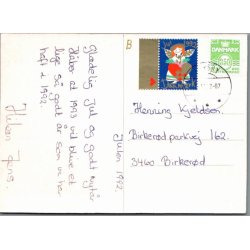 Glædelig Jul og godt nytår
Håber at 1993 vil blive et
lige så godt år som vi har
haft i 1992
Julen 1992
B
1992
Henning Kjeldsen
Birkerød parkvej
3460 Birkerød